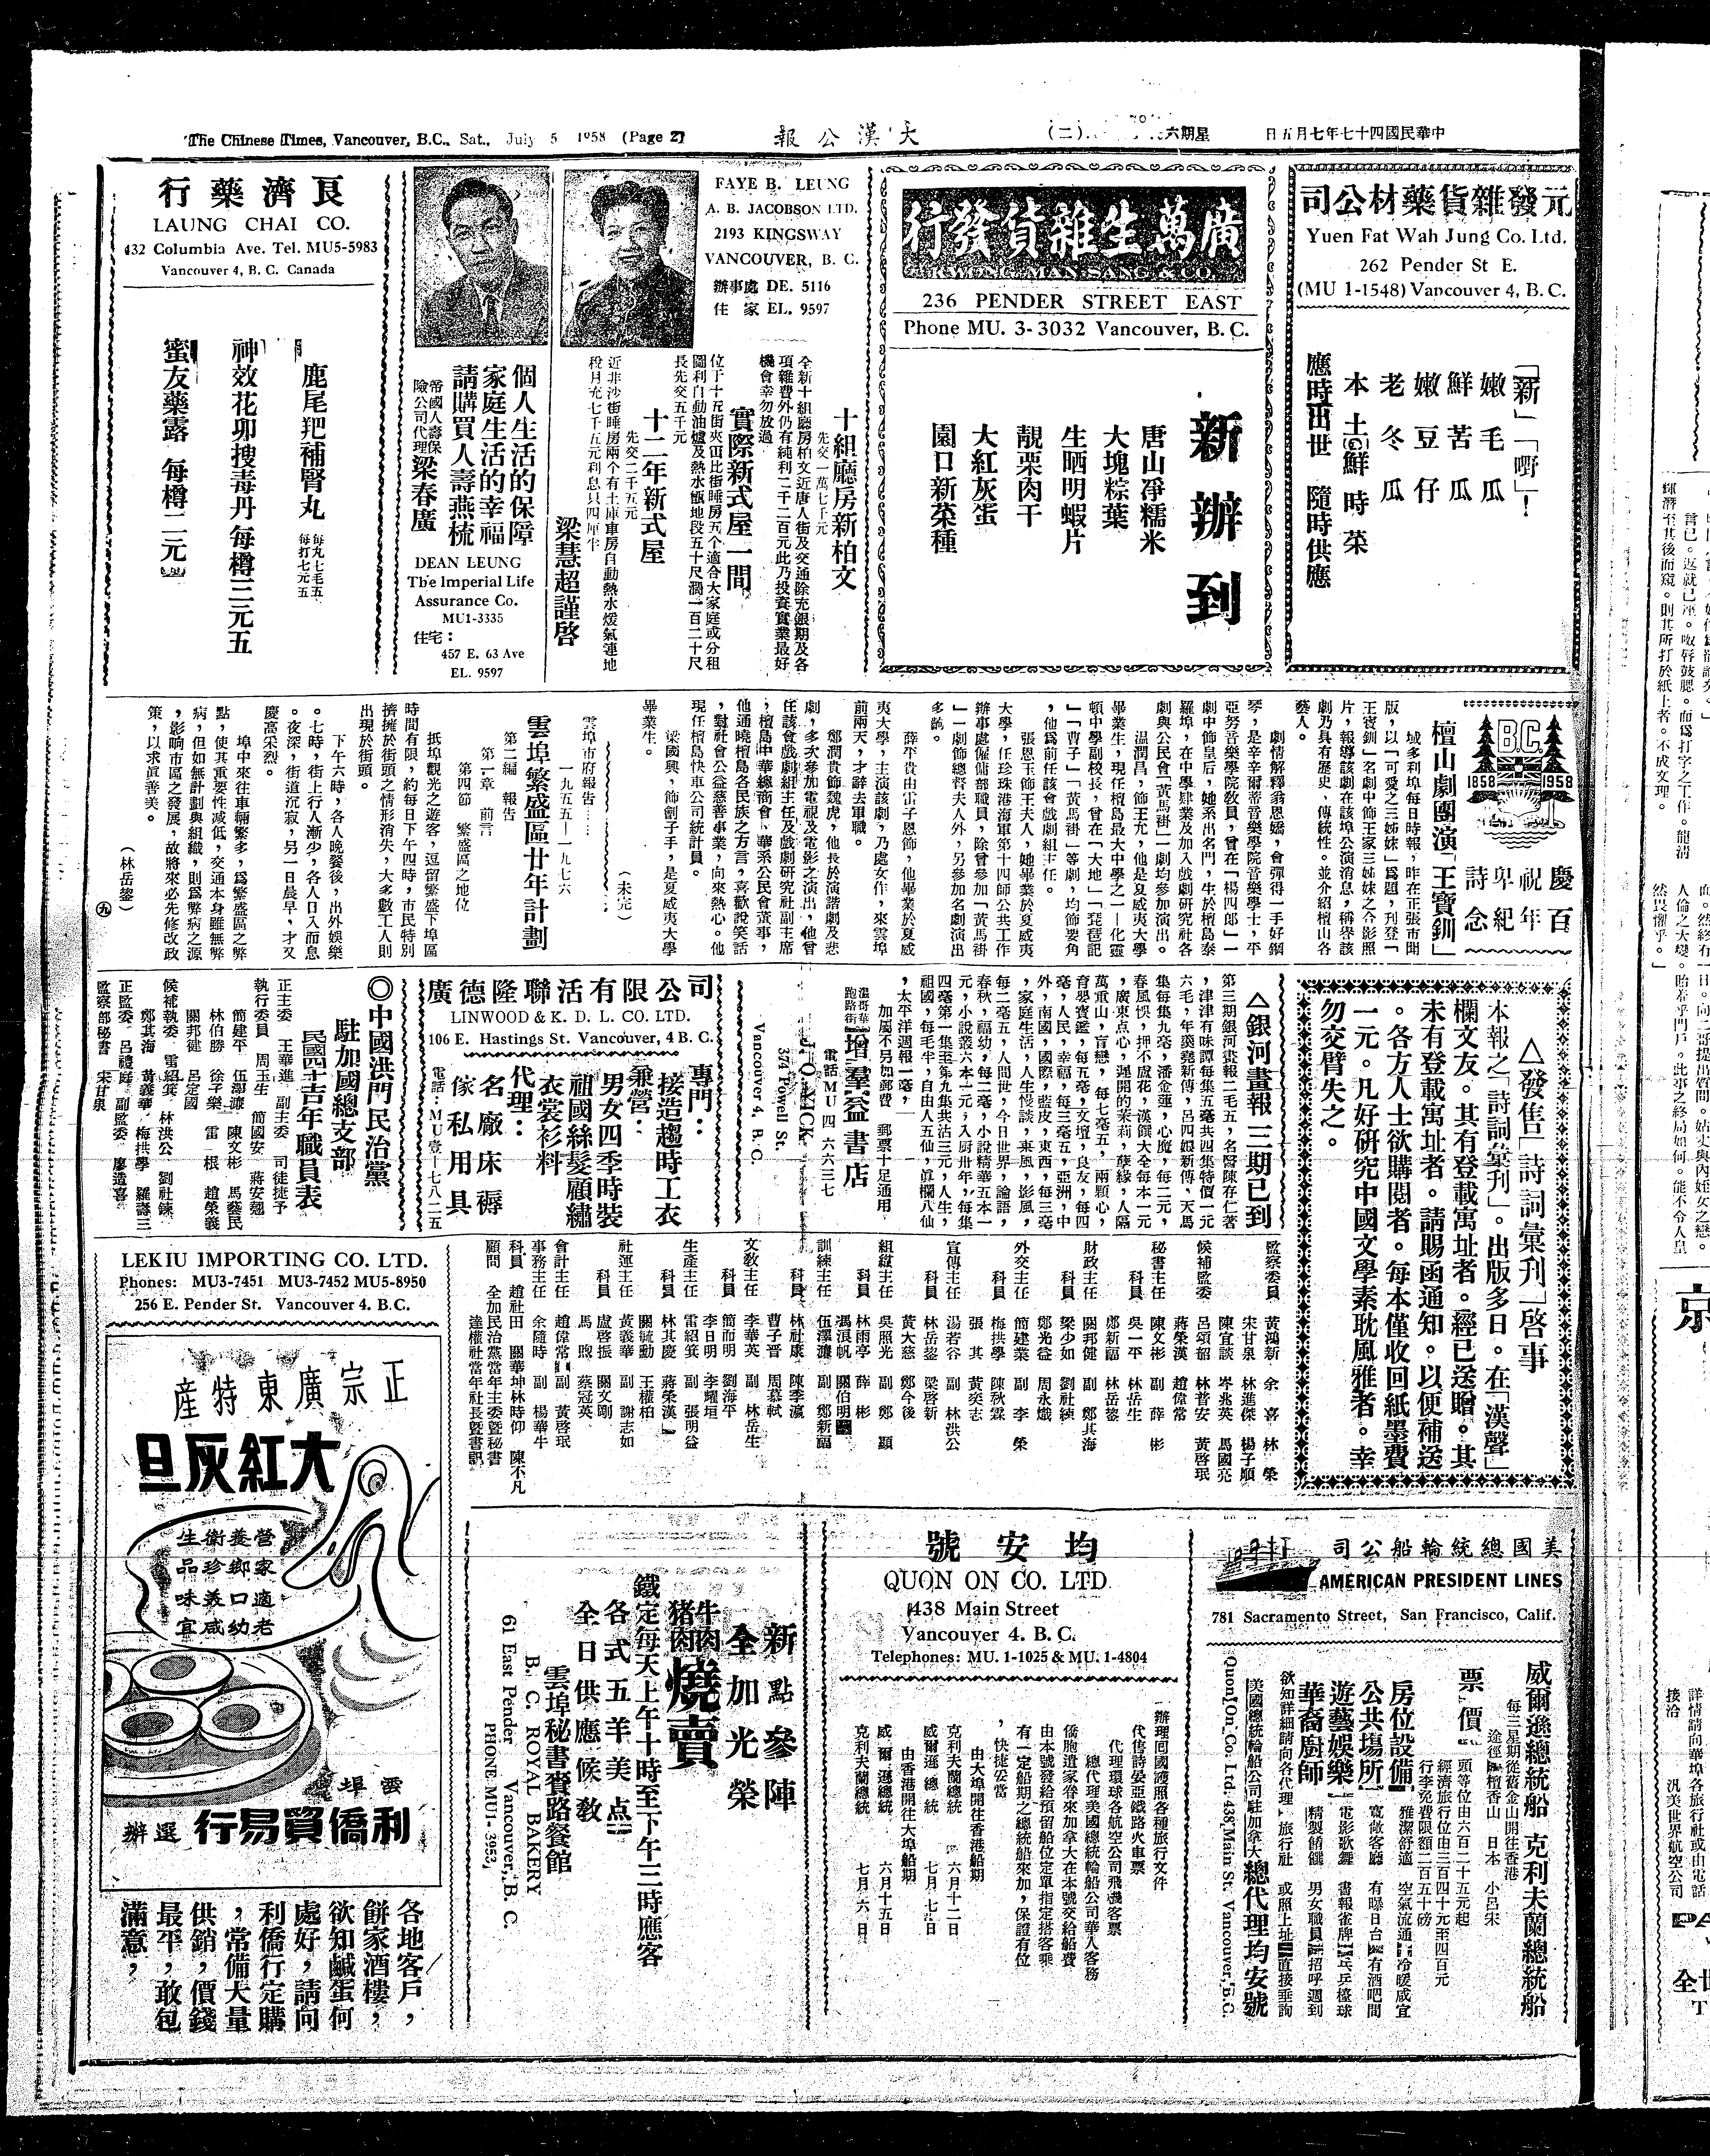 The Chinese Times, Vancouver, B.C., Sat., July 5 1958 (Page 2)
大漢公報
(二)
星期六
中華民國四十七年七月五日
元發雜貨藥材公司
Yuen Fat Wah Jung Co. Ltd.
262 Pender St E.
(MU 1-1548) Vancouver 4, B.C.
「新」「嘢」!
嫩毛瓜
鮮苦瓜
嫩豆仔
老冬瓜
本土鮮時菜
應時出世 隨時供應
廣萬生雜貨發行
KWONG MAN SANG & CO.
236 PENDER STREET EAST
Phone MU. 3-3032 Vancouver, B.C.
新辦到
唐山凈糯米
大塊粽葉
生晒明蝦片
靚栗肉干
大紅灰蛋
園口新菜種
FAYE B. LEUNG
A. B. JACOBSON LTD.
2193 KINGSWAY
VANCOUVER, B. C.
辦事處 DE. 5116
住 家 EL. 9597
十組廳房新柏文
先交一萬七千元
全新十組廳房柏文近唐人街及交通除充銀期及各
項雜費外仍有純利二千二百元此乃投資實業最好
機會幸勿放過
實際新式屋一間
位于十五街夾
比街睡房五个適合大家庭或分租
圖利自動油爐及熱水甑地段五十尺濶一百二十尺
長先交五千元
十二年新式屋
先交二千五元
近非沙街睡房兩个有土庫車房自動熱水煖氣連地
稅月充七千五元利息只四厘半
梁慧超謹啓
個人生活的保障
家庭生活的幸福
請購買人壽燕梳
帝國人壽保
險公司代理
梁春廣
DEAN LEUNG
The Imperial Life
Assurance Co.
MU1-3335
住宅:
457 E. 63 Ave
EL. 9597
良濟藥行
LAUNG CHAI CO.
432 Columbia Ave. Tel. MU5-5983
Vancouver 4, B. C. Canada
鹿尾羓補腎丸
每丸七毛五
每打七元五
神效花卯搜毒丹 每樽三元五
蜜友藥露 每樽二元
B.C.
1858 1958
慶祝卑詩
百年紀念
檀山劇團演「王寶釧」
域多利埠每日時報,昨在正張市聞
版,以「可愛之三姊妹」爲題,刋登「
王寶釧」名劇中飾王家三姊妹之合影照
片,報導該劇在該埠公演消息,稱譽該
劇乃具有歷史,傳統性。並介紹檀山各
藝人。
劇情解釋翁恩嬌,會彈得一手好鋼
琴,是辛辛爾蒂音樂學院音樂學士,平
亞努音樂學院敎員,曾在「楊四郎」一
劇中飾皇后,她系出名門,生於檀島泰
羅埠,在中學肄業及加入戲劇硏究社各
劇與公民會「黃馬褂」一劇均參加演出。
温潤昌,飾王允,他是夏威夷大學
畢業生,現任檀島最大中學之一—化靈
頓中學副校長,曾在「大地」「琵琶記
」「曹子」「黃馬褂」等劇,均飾要角
,他爲前任該會戲劇組主任。
張恩玉飾王夫人,她畢業於夏威夷
大學,任珍珠港海軍第十四師公共工作
辦事處僱傭部職員,除曾參加「黃馬褂
」一劇飾總督夫人外,另參加名劇演出
多齣。
薛平貴由雷子恩飾,他畢業於夏威
夷大學,主演該劇,乃處女作,來雲埠
前兩天,才辭去軍職。
鄭潤貴飾魏虎,他長於演諧劇及悲
劇,多次參加電視及電影之演出,他曾
任該會戲劇組主任及戲劇硏究社副主席
,檀島中華總商會,華系公民會董事,
他通曉檀島各民族之方言,喜歡說笑話
,對社會公益慈善事業,向來熱心。他
現任檀島快車公司統計員。
梁國興,飾劊子手,是夏威夷大學
畢業生。
(未完)
雲埠市府報告……
一九五五—一九七六
雲埠繁盛區廿年計劃
第二編 報告
第一章 前言
第四節 繁盛區之地位
抵埠觀光之遊客,逗留繁盛下埠區
時間有限,約每日下午四時,市民特別
擠擁於街頭之情形消失,大多數工人則
出現於街頭。
下午六時,各人晚餐後,出外娛樂
。七時,街上行人漸少,各人日入而息
。夜深,街道沉寂,另一日晨早,才又
慶高采烈。
埠中來往車輛繁多,爲繁盛區之弊
點,使其重要性減低,交通本身雖無弊
病,但如無計劃與組織,則爲弊病之源
,影响市區之發展,故將來必先修改政
策,以求眞善美。
(林岳鋆)
九
△發售「詩詞彙刋」啓事
本報之「詩詞彙刋」。出版多日。在「漢聲」
欄文友。其有登載寓址者。經已送贈。其
未有登載寓址者。請賜函通知。以便補送
。各方人士欲購閱者。每本僅收回紙墨費
一元。凡好硏究中國文學素耽風雅者。幸
勿交臂失之。
△銀河畫報三期已到
第三期銀河畫報二毛五,名醫陳存仁著
,津津有味譚每集五毫共四集特價一元
六毛,年羹堯新傳,呂四娘新傳,天馬
集每集九毫,潘金蓮,心魔,每二元,
春風悞,押不盧花,漢
大全每本一元
,廣東点心,遲開的茉莉,孽緣,人隔
萬重山,盲戀,每七毫五,兩顆心,
育嬰寶鑑,每五毫,文壇,良友,每四
毫,人民,幸福,每三毫五,亞洲,中
外,南國,國際,藍皮,東西,每三毫
,家庭生活,人生
談,
風,影風,
每二毫五,人間世,今日世界,論語,
春秋,福幼,每二毫,小說精華五本一
元,小說叢六本一元,入厨卅年,每集
四毫第一集至第九集共沽三元,人生,
祖國,每毛半,自由人五仙,眞欄八仙
,太平洋週報一毫,
加屬不另加郵費 郵票十足通用
溫哥華
跑路街
增羣益書店
電話MU四 六六三七
374 Powell St.
Vancouver 4, B. C.
司公限有活聯隆德廣
LINWOOD & K. D. L. CO. LTD.
106 E. Hastings St. Vancouver, 4 B. C.
專門:
接造趨時工衣
兼營:
男女四季時裝
祖國絲髮顧繡
衣裳衫料
代理:
名廠床褥
傢私用具
電話:MU壹—七八二五
◎中國洪門民治黨
駐加國總支部
民國四十七年職員表
正主委 王華進 副主委 司徒捷予
執行委員 周玉生 簡國安 蔣安翹
簡建平 伍澤濂 陳文彬 馬藝民
林伯勝 徐子樂 雷一根 趙榮義
關邦健 呂定國
候補執委 雷紹箕 林洪公 劉社鍊
鄭其海 黃義華 梅拱學 羅壽三
正監委 呂禮
副監委 廖道喜
監察部秘書 宋甘泉
監察委員 黃鴻新 余喜 林榮
宋甘泉 林進傑 楊子順
陳宜談 岑兆英 馬國亮
候補監委 呂頌韶 林普安 黃啓珉
蔣榮漢 趙偉常
秘書主任 陳文彬 副 薛彬
科員 吳一平 林岳生
鄭新福 林岳鋆
財政主任 關邦健 副 鄭其海
科員 梁少如 劉社練
鄭光益 周永熾
外交主任 簡建業 副 李榮
科員 梅拱學 陳秋霖
張其 黃奕志
宣傳主任 湯若谷 副 林洪公
科員 林岳鋆 梁啓新
黃大慈 鄭今後
組織主任 吳照光 副 鄭顯
科員 林雨亭 薛彬
馮浪帆 關伯明
訓練主任 伍澤濂 副 鄭新福
科員 林社康 陳季瀛
曹子晋 周慕軾
文敎主任 李華英 副 林岳生
科員 簡而明 劉海平
李日明 李耀垣
生產主任 雷紹箕 副 張明益
科員 林其慶 蔣榮漢
關毓勳 王權柏
社運主任 黃義華 副 謝志如
科員 盧啓振 關文剛
馬煦 蔡冠英
會計主任 趙偉常 副 黃啓珉
事務主任 余隨時 副 楊華牛
科員 趙社田 關華坤 林時仰 陳不凡
顧問 全加民治黨當年主委暨秘書
達權社當年社長暨書記
LEKIU IMPORTING CO. LTD.
Phones: MU3-7451 MU3-7452 MU5-8950
256 E. Pender St. Vancouver 4. B.C.
正宗廣東特產
大紅灰旦
營養衛生
家鄉珍品
適口美味
老幼咸宜
雲埠
利僑貿易行 選辦
各地客戶,
餅家酒樓,
欲知鹹蛋何
處好,請向
利僑行定購
,常備大量
供銷,價錢
最平,敢包
滿意,
新點參陣
全加光榮
牛肉
猪肉
燒賣
鐵定每天上午十時至下午三時應客
各式五羊美点
全日供應候教
雲埠秘書賓路餐館
B. C. ROYAL BAKERY
61 East Pender Vancouver, B. C.
PHONE MU1-3953
均安號
QUON ON CO. LTD
438 Main Street
Vancouver 4. B. C.
Telephones: MU. 1-1025 & MU. 1-4804
辦理回國護照各種旅行文件
代售詩晏亞鐵路火車票
代理環球各航空公司飛機客票
總代理美國總統輪船公司華人客務
僑胞遺家眷來加拿大在本號交給船費
由本號發給預留船位定單指定搭客乘
有一定船期之總統船來加,保證有位
,快捷妥當
由大埠開往香港船期
克利夫蘭總統 六月十二日
威爾遜總統 七月七日
由香港開往大埠船期
威爾遜總統 六月十五日
克利夫蘭總統 七月六日
美國總統輪船公司
AMERICAN PRESIDENT LINES
781 Sacramento Street, San Francisco, Calif.
威爾遜總統船 克利夫蘭總統船
每三星期從舊金山開往香港
途徑 檀香山 日本 小呂宋
票價 頭等位由六百二十五元起
經濟旅行位由三百四十元至四百元
行李免費限額二百五十磅
房位設備 雅潔舒適 空氣流通 冷暖咸宜
公共塲所 寬敞客廳 有曝日台 有酒吧間
遊藝娛樂 電影歌舞 書報雀牌 乒乓檯球
華裔廚師 精製餚饌 男女職員 招呼週到
欲知詳細請向各代理 旅行社 或照上址 直接垂詢
美國總統輪船公司駐加拿大總代理均安號
Quon On Co. Ltd. 438 Main St. Vancouver, B.C.
輝潛至其後而窺。則其所打於紙上者。不成文理。
詳情請向華埠各旅行社或由電話
接洽 汎美世界航空公司